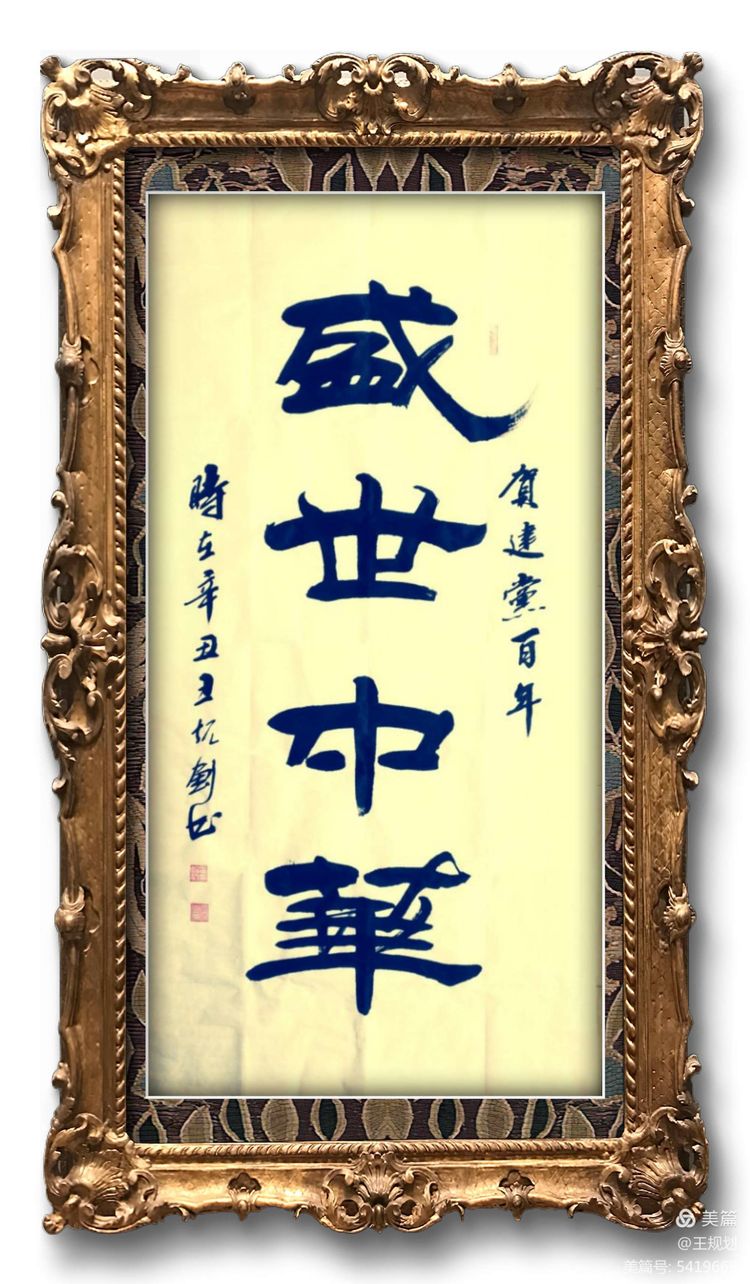 賀建黨百年
盛世中華
時在辛丑王劍书
美篇
@王规划
美篇号: 541966